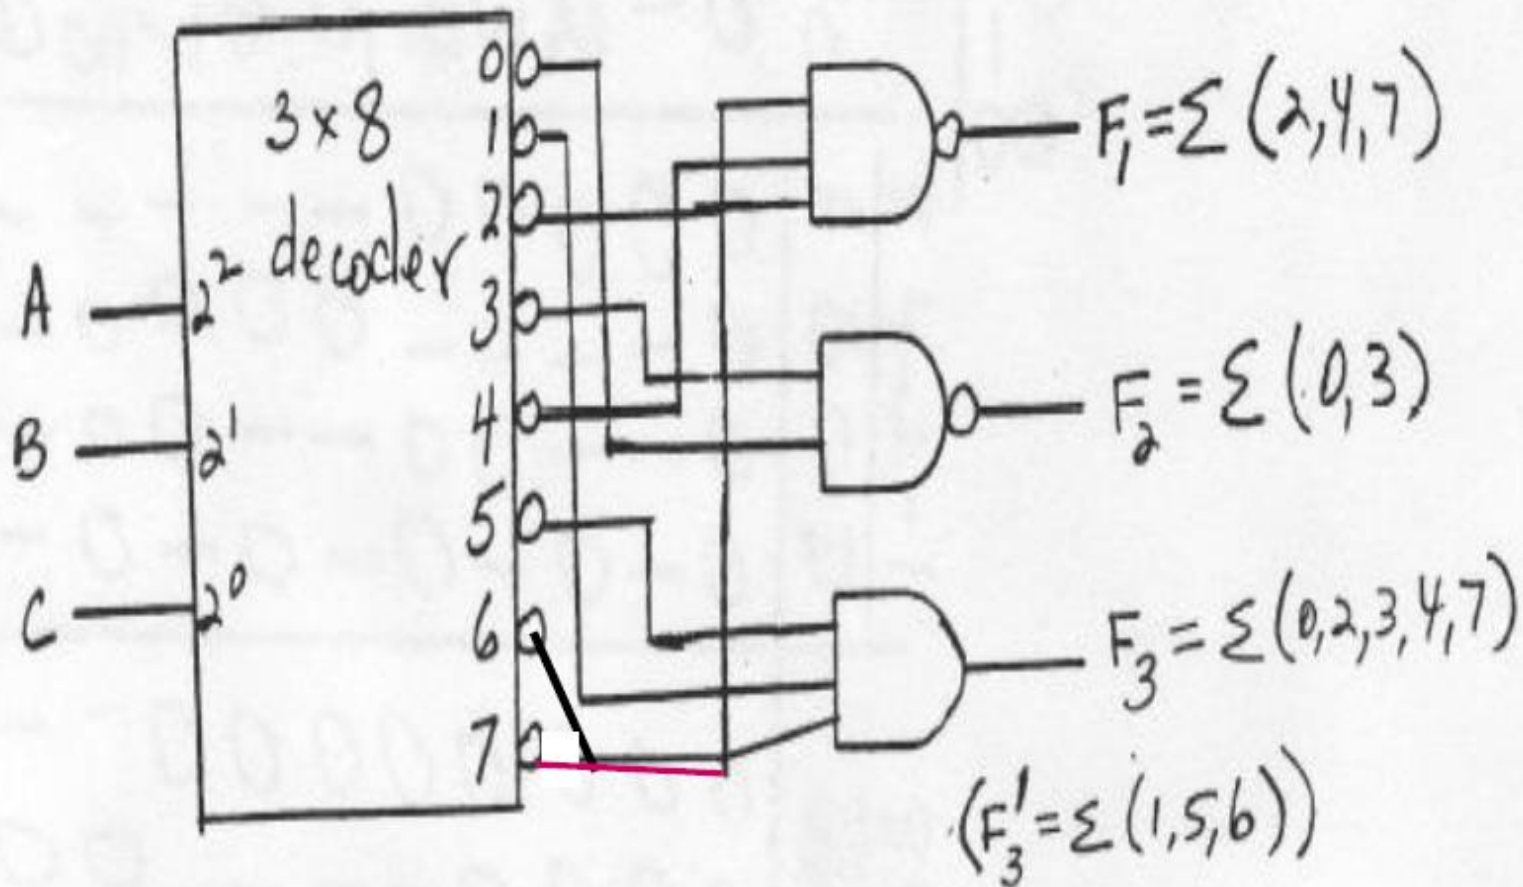 3x8
decoder
A
B
C
2²
2¹
2⁰
0
1
2
3
4
5
6
7
F₁ = Σ (2,4,7)
F₂ = Σ (0,3)
F₃ = Σ (0,2,3,4,7)
(F₃' = Σ (1,5,6))